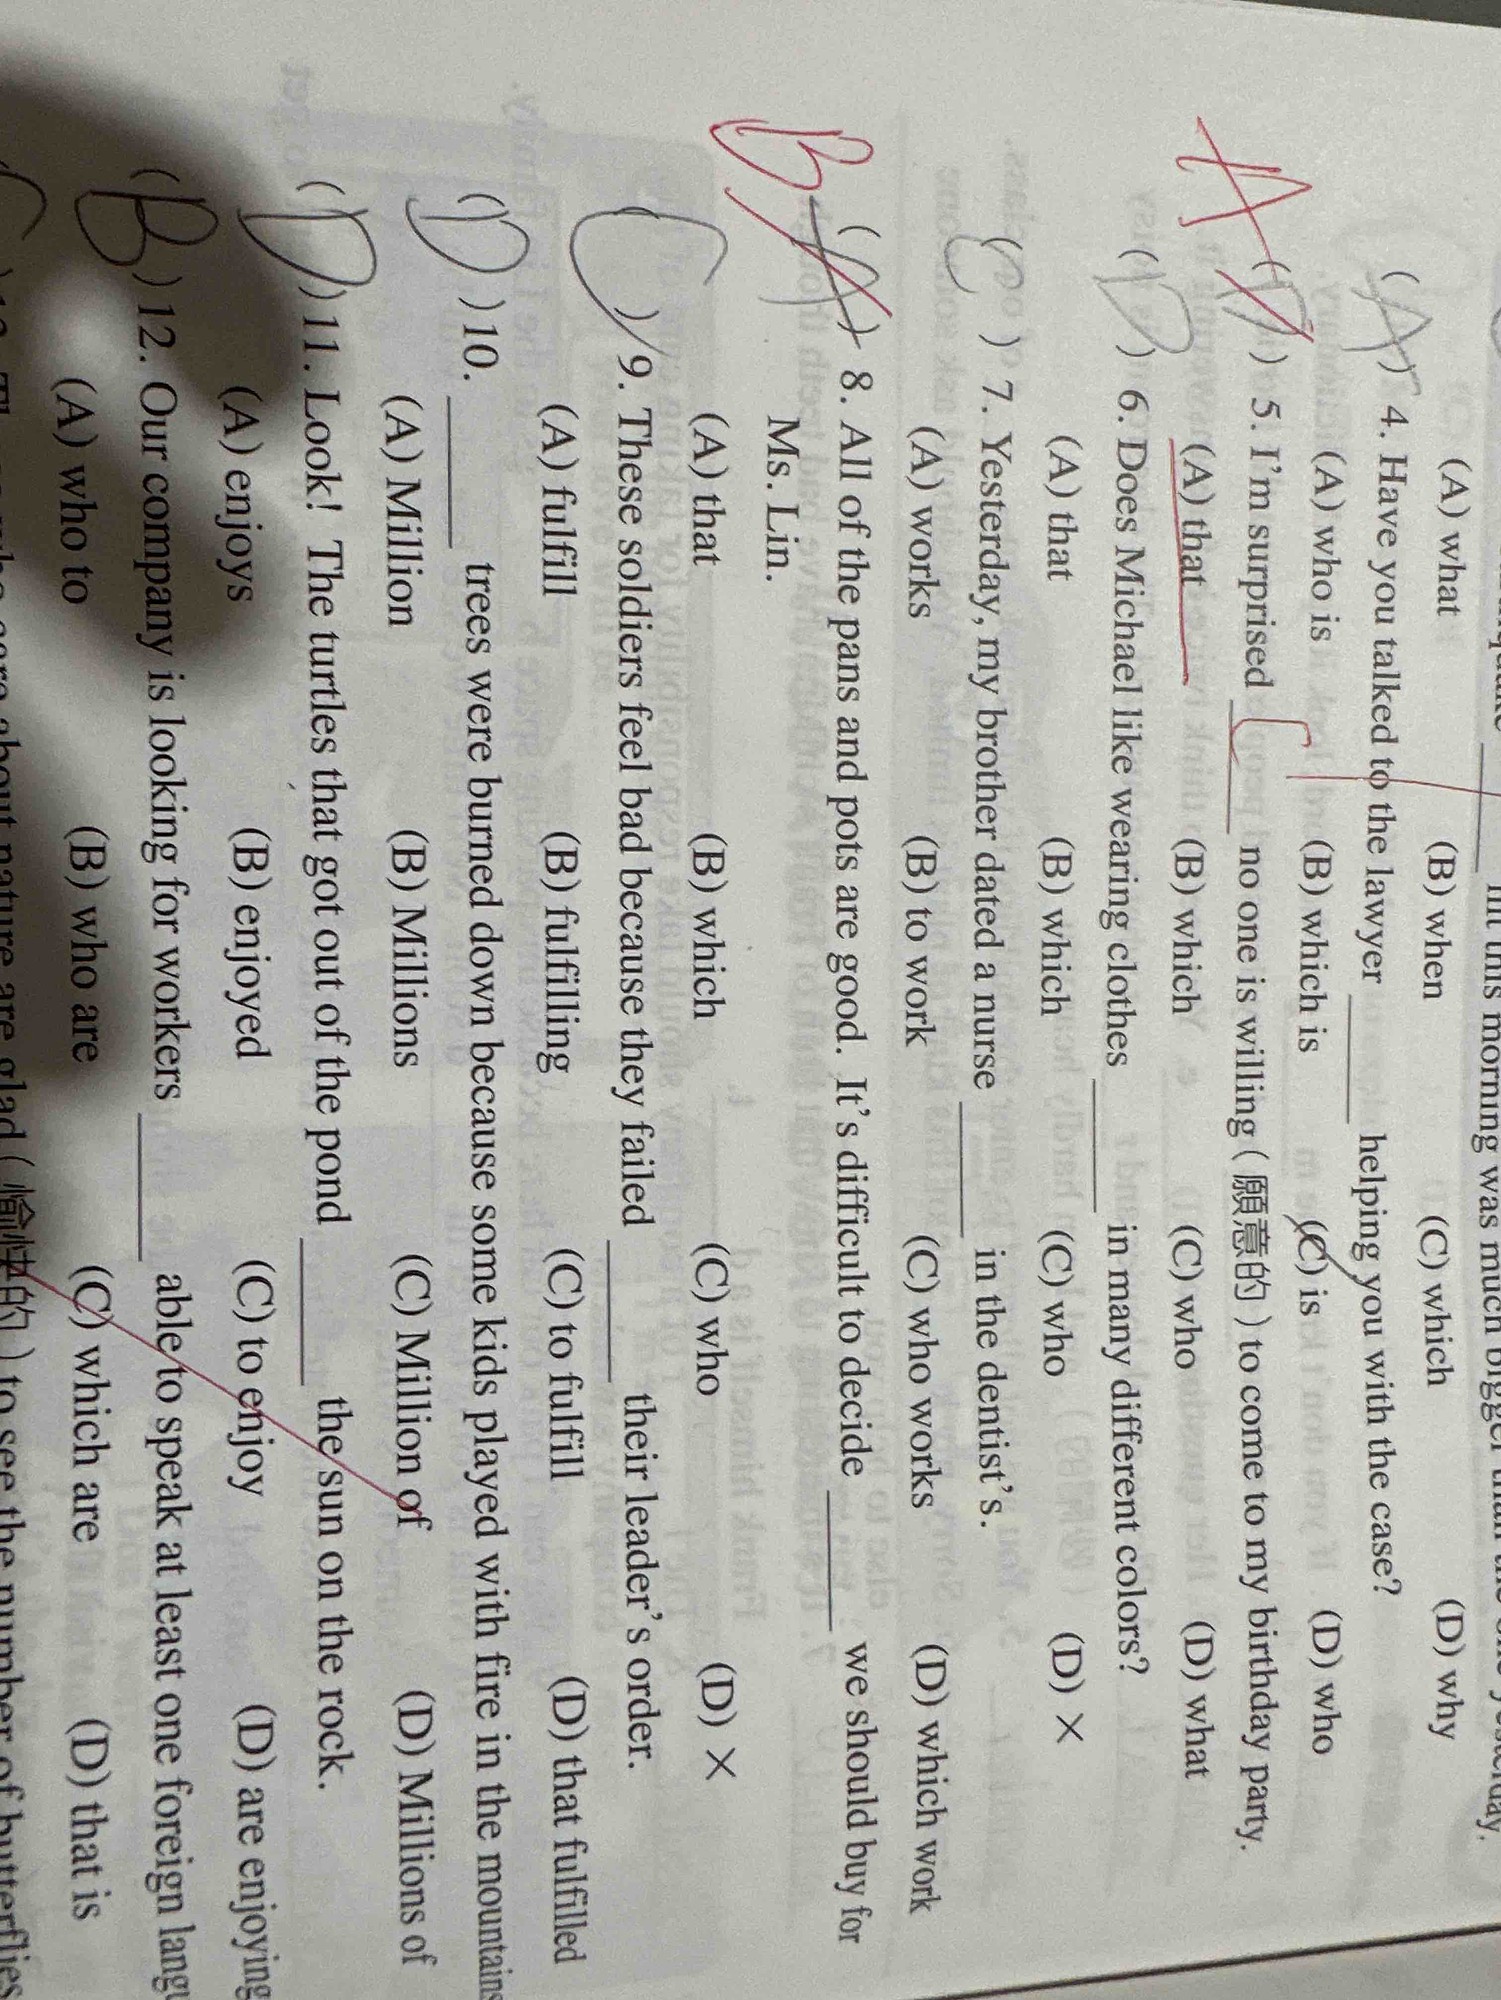 hit this morning was much bigger than the one yesterday.
(A) what (B) when (C) which (D) why
(A) 4. Have you talked to the lawyer ______ helping you with the case?
(A) who is (B) which is (C) is (D) who
A (D) 5. I'm surprised ______ no one is willing (願意的) to come to my birthday party.
(A) that (B) which (C) who (D) what
(D) 6. Does Michael like wearing clothes ______ in many different colors?
(A) that (B) which (C) who (D) ×
(C) 7. Yesterday, my brother dated a nurse ______ in the dentist's.
(A) works (B) to work (C) who works (D) which work
B (A) 8. All of the pans and pots are good. It's difficult to decide ______ we should buy for
Ms. Lin.
(A) that (B) which (C) who (D) ×
(C) 9. These soldiers feel bad because they failed ______ their leader's order.
(A) fulfill (B) fulfilling (C) to fulfill (D) that fulfilled
(D) 10. ______ trees were burned down because some kids played with fire in the mountains
(A) Million (B) Millions (C) Million of (D) Millions of
(D) 11. Look! The turtles that got out of the pond ______ the sun on the rock.
(A) enjoys (B) enjoyed (C) to enjoy (D) are enjoying
(B) 12. Our company is looking for workers ______ able to speak at least one foreign
(A) who to (B) who are (C) which are (D) that is
care about nature are glad (愉快的) to see the number of butterflies